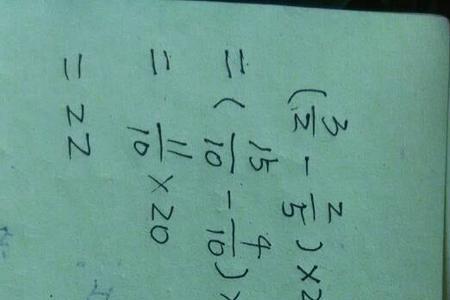 (3/2 - 2/5) × 2
= (15/10 - 4/10) ×
= 11/10 × 20
= 22